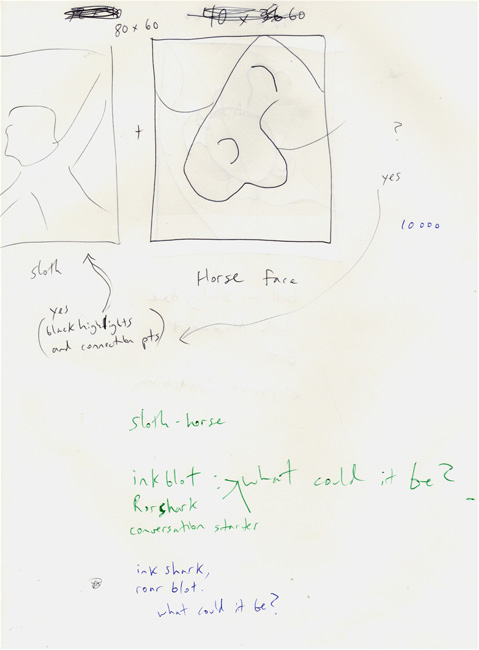 80 x 60
60
+
?
yes
10000
sloth
Horse Face
yes
(black highlights
and connection pts)
sloth-horse
ink blot : what could it be?
Rorshark
conversation starter
ink shark,
roar blot.
what could it be?